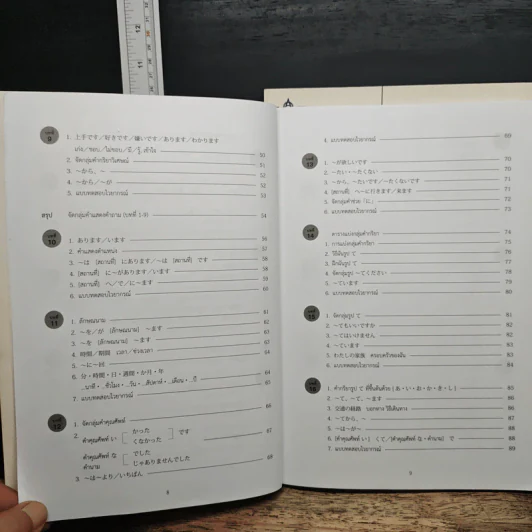 บทที่ 9
1. 上手です／好きです／嫌いです／あります／わかります
เก่ง／ชอบ／ไม่ชอบ／มี／รู้, เข้าใจ 50
2. จัดกลุ่มคำกริยาวิเศษณ์ 51
3. ～から、～ 52
4. ～から／～が 52
5. แบบทดสอบไวยากรณ์ 53
สรุป จัดกลุ่มคำแสดงคำถาม (บทที่ 1-9) 54
บทที่ 10
1. あります／います 56
2. คำแสดงตำแหน่ง 57
3. ～は [สถานที่] にあります／～は [สถานที่] です 58
4. [สถานที่] に～があります／います 58
5. [สถานที่] へ／で／に～ます 59
6. แบบทดสอบไวยากรณ์ 60
บทที่ 11
1. ลักษณนาม 61
2. ～を／が [ลักษณนาม] ～ます 62
3. ～を [ลักษณนาม] ～ます 63
4. 時間／期間 เวลา／ช่วงเวลา 64
5. ～に～回
6. 分・時間・日・週間・か月・年
...นาที・...ชั่วโมง・...วัน・...สัปดาห์・...เดือน・...ปี
7. แบบทดสอบไวยากรณ์ 65
บทที่ 12
1. จัดกลุ่มคำคุณศัพท์ 66
2.
คำคุณศัพท์ い かった です
くなかった
คำคุณศัพท์ な でした 67
คำนาม じゃありませんでした
3. ～は～より／いちばん 68
8
4. แบบทดสอบไวยากรณ์ 69
บทที่ 13
1. ～が欲しいです 70
2. ～たい・～たくない 70
3. ～から、～たいです／～たくないです 71
4. [สถานที่] へ～に行きます／来ます 71
5. จัดกลุ่มคำช่วย [に] 72
6. แบบทดสอบไวยากรณ์ 73
บทที่ 14
ตารางแบ่งกลุ่มคำกริยา 74
1. การแบ่งกลุ่มคำกริยา 75
2. วิธีผันรูป て 76
3. ฝึกผันรูป て 77
4. จัดกลุ่มรูป ～てください 78
5. ～ています 79
6. แบบทดสอบไวยากรณ์ 80
บทที่ 15
1. จัดกลุ่มรูป て 81
2. ～てもいいですか 82
3. ～てはいけません 82
4. ～ています 83
5. わたしの家族 ครอบครัวของฉัน 83
6. แบบทดสอบไวยากรณ์ 84
บทที่ 16
1. คำกริยารูป て
2. ～て、～て、～ます 86
3. 交通の経路 บอกทาง วิธีเดินทาง 86
4. ～てから、～ 87
5. ～は～が～ 87
6. [คำคุณศัพท์ い] くて／[คำคุณศัพท์ な・คำนาม] で 88
7. แบบทดสอบไวยากรณ์ 89
9